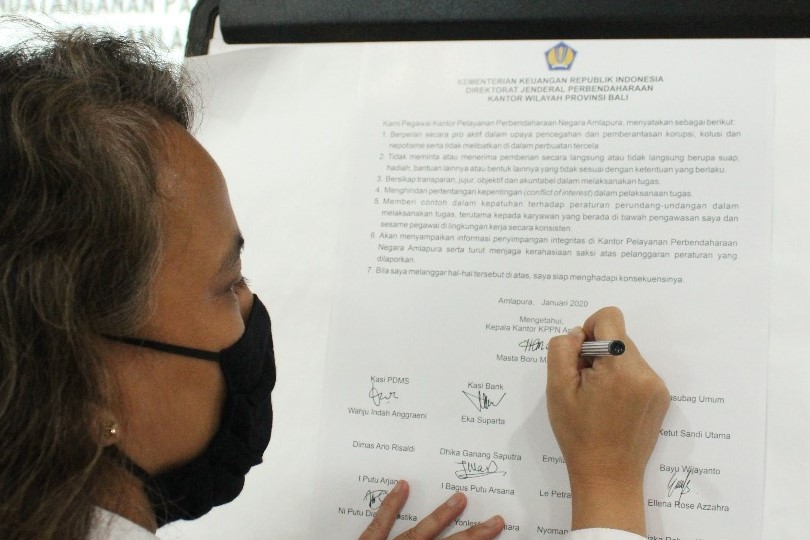 NDATANGANAN PA
AMLA
KEMENTERIAN KEUANGAN REPUBLIK INDONESIA
DIREKTORAT JENDERAL PERBENDAHARAAN
KANTOR WILAYAH PROVINSI BALI
Kami Pegawai Kantor Pelayanan Perbendaharaan Negara Amlapura, menyatakan sebagai berikut:
1. Berperan secara pro aktif dalam upaya pencegahan dan pemberantasan korupsi, kolusi dan
nepotisme serta tidak melibatkan di dalam perbuatan tercela.
2. Tidak meminta atau menerima pemberian secara langsung atau tidak langsung berupa suap,
hadiah, bantuan lainnya atau bentuk lainnya yang tidak sesuai dengan ketentuan yang berlaku.
3. Bersikap transparan, jujur, objektif dan akuntabel dalam melaksanakan tugas.
4. Menghindari pertentangan kepentingan (conflict of interest) dalam pelaksanaan tugas.
5. Memberi contoh dalam kepatuhan terhadap peraturan perundang-undangan dalam
melaksanakan tugas, terutama kepada karyawan yang berada di bawah pengawasan saya dan
sesame pegawai di lingkungan kerja secara konsisten.
6. Akan menyampaikan informasi penyimpangan integritas di Kantor Pelayanan Perbendaharaan
Negara Amlapura serta turut menjaga kerahasiaan saksi atas pelanggaran peraturan yang
dilaporkan.
7. Bila saya melanggar hal-hal tersebut di atas, saya siap menghadapi konsekuensinya.
Amlapura, Januari 2020
Mengetahui,
Kepala Kantor KPPN A
Masta Boru M
Kasi PDMS Kasi Bank asubag Umum
Wahju Indah Anggraeni Eka Suparta Ketut Sandi Utama
Dimas Ario Risaldi Dhika Ganang Saputra Emyli Bayu Wijayanto
I Putu Arjan I Bagus Putu Arsana Le Petra Ellena Rose Azzahra
Ni Putu Dia astika Yonles ara Nyoman izka